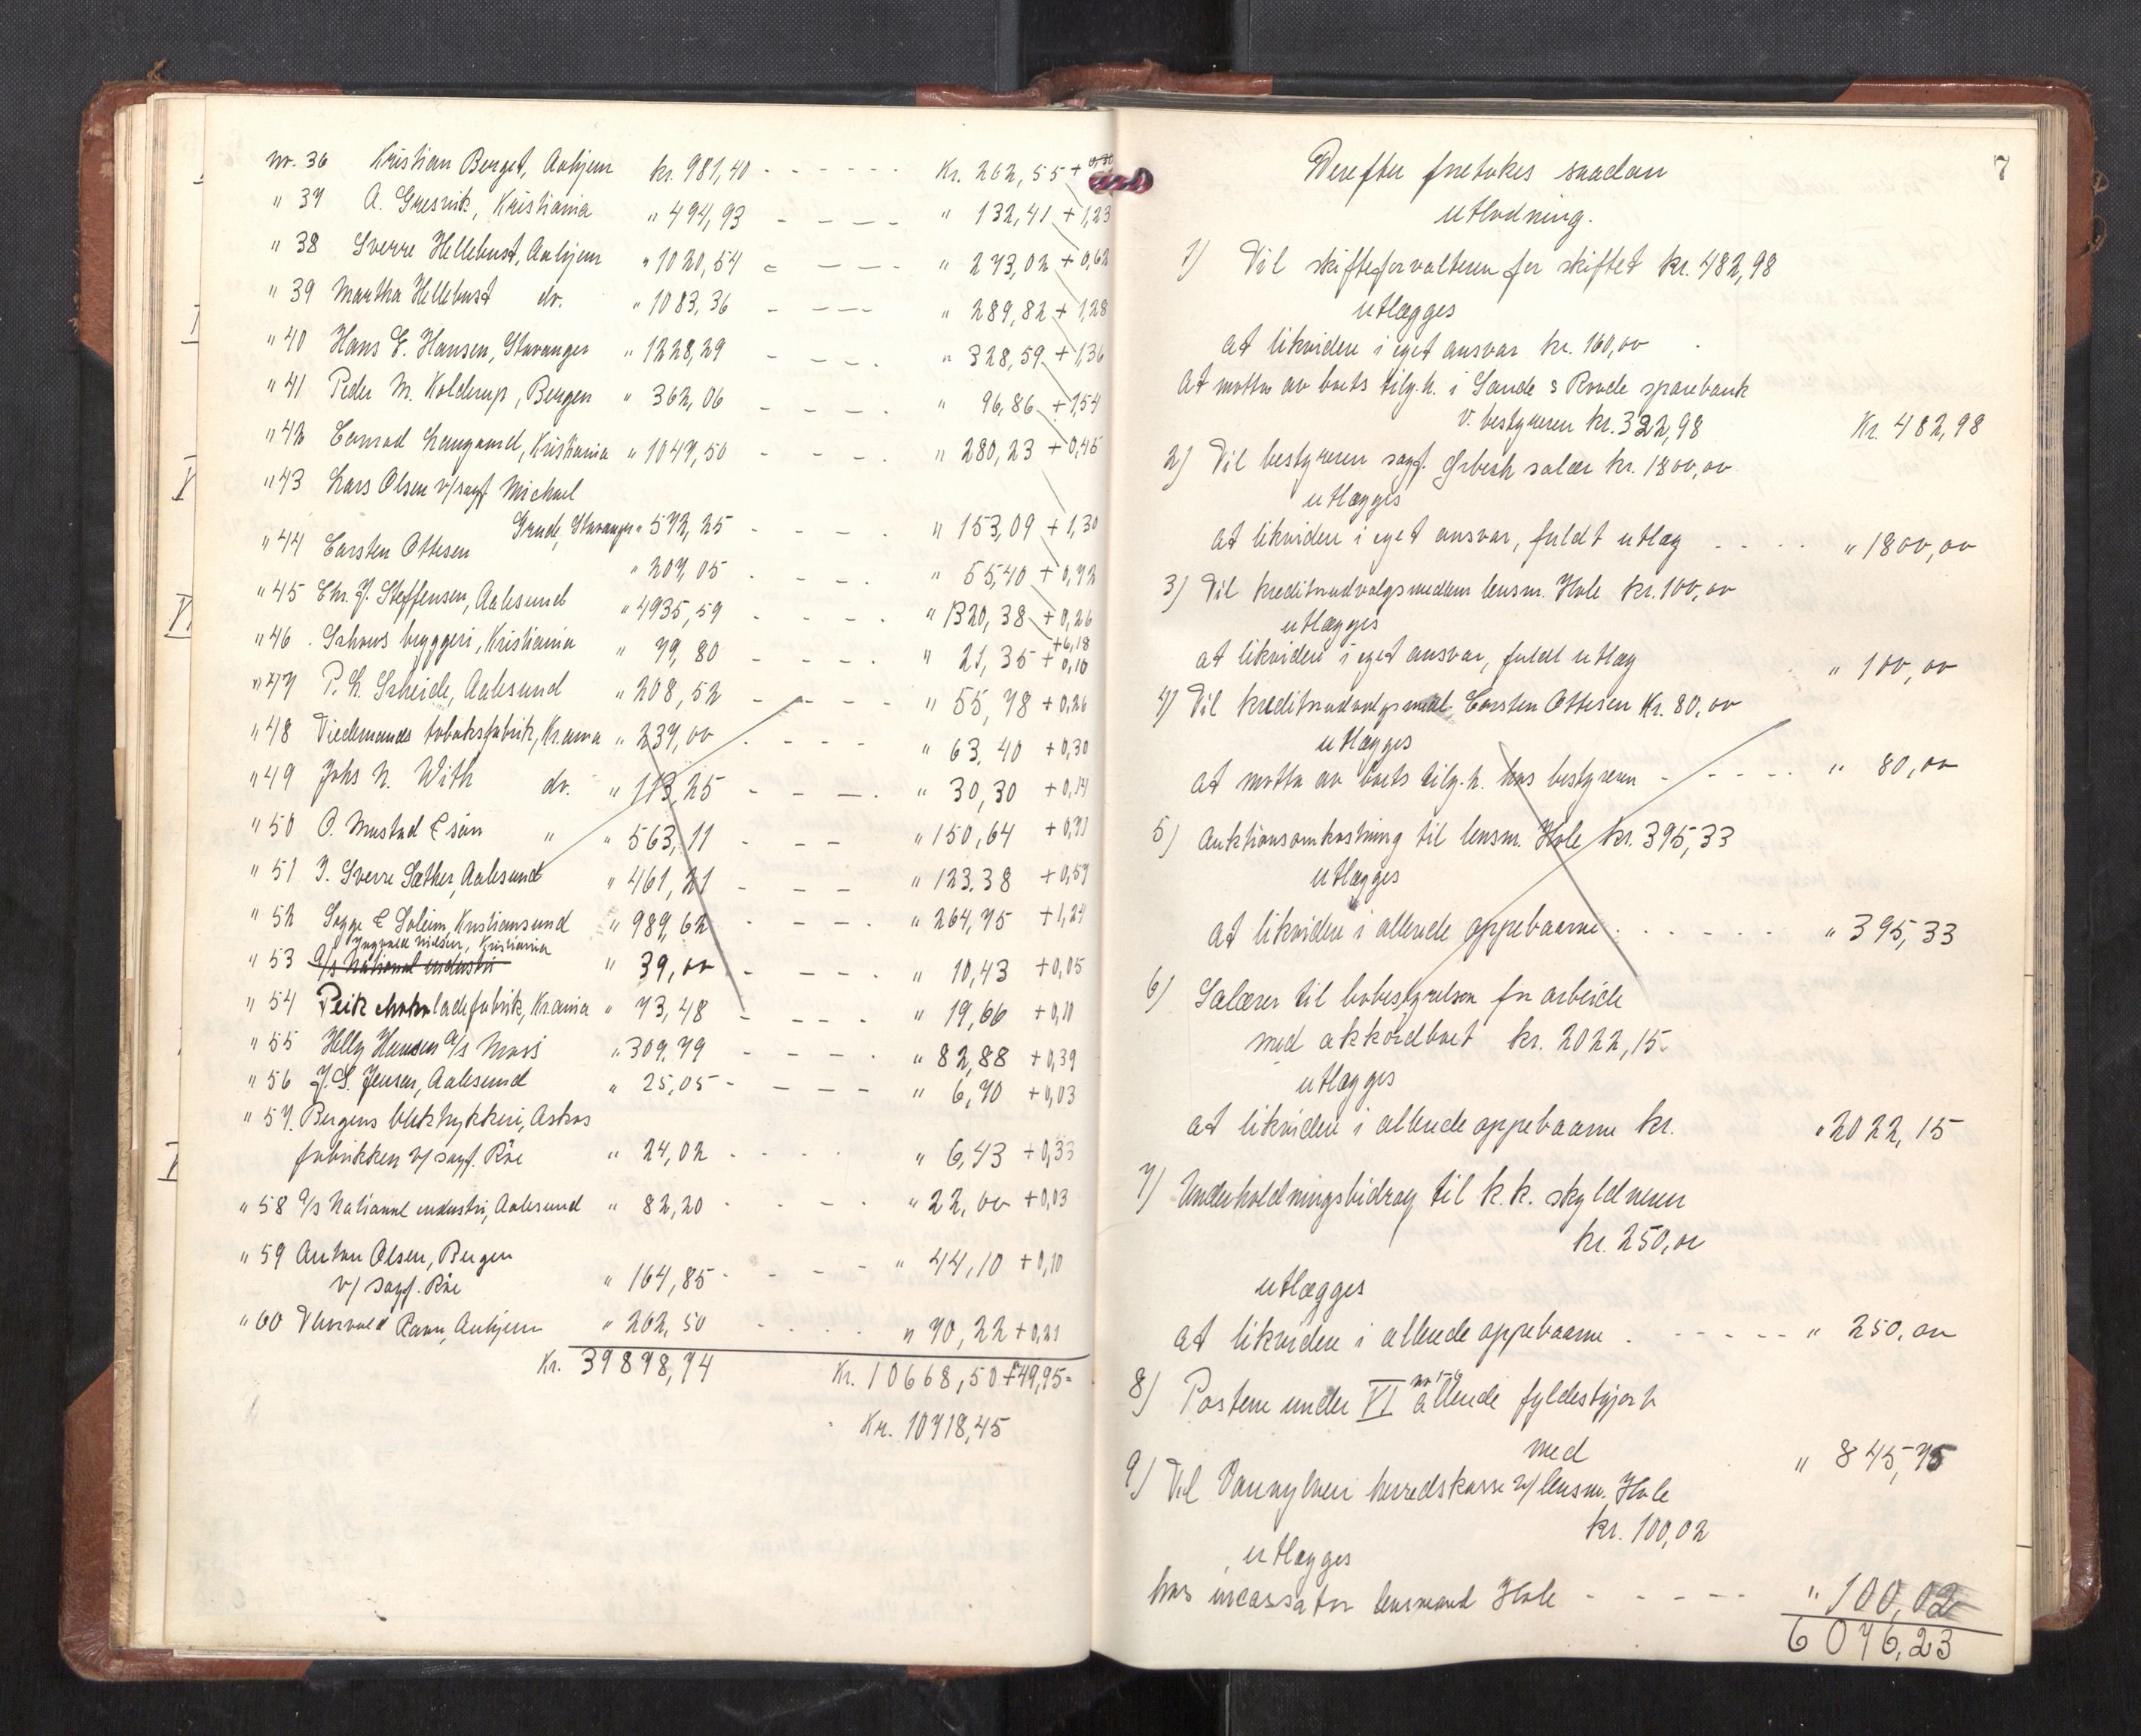 nr. 36 Kristian Berget, Aahjem kr. 981,40 - - - - - - Kr. 262,55 +
" 37 A. Gresvik, Kristiania " 494,93 - - - - " 132,41 + 1,23
" 38 Sverre Hellebust, Aahjem " 1020,54 - - - - " 273,02 + 0,62
" 39 Martha Hellebust do. " 1083,36 - - - - " 289,82 + 1,28
" 40 Hans E. Hansen, Stavanger " 1228,29 - - - . " 328,59 + 1,36
" 41 Peder M. Kolderup, Bergen " 362,06 - - - . " 96,86 + 1,54
" 42 Conrad Langaard, Kristiania " 1047,50 - - - . " 280,23 + 0,45
" 43 Lars Olsen v/ sagf. Michael
Grude, Stavanger " 572,25 - - - . " 153,09 + 1,30
" 44 Carsten Ottesen " 207,05 - - - . " 55,40 + 0,72
" 45 Chr. J. Steffensen, Aalesund " 4935,59 - - - . " 1320,38 + 0,26
+6,18
" 46 Schous bryggeri, Kristiania " 79,80 - - - . " 21,35 + 0,10
" 47 P. L. Scheide, Aalesund " 208,52 - - - - " 55,78 + 0,26
" 48 Tiedemands tobaksfabrik, Kr.ania " 237,00 - - - - " 63,40 + 0,30
" 49 Johs N. With do. " 113,25 - - - . " 30,30 + 0,14
" 50 O. Mustad & søn " " 563,11 - - - " 150,64 + 0,71
" 51 J. Sverre Sæther, Aalesund " 461,21 - - - " 123,38 + 0,57
" 52 Sogge & Soleim, Kristiansund " 989,62 - - - . " 264,75 + 1,24
Ingvald Nielsen, Kristiania
" 53 A/s National industri " 39,00 - - - - " 10,43 + 0,05
" 54 Peik chokoladefabrik, Kr.ania " 73,48 - - - . " 19,66 + 0,10
" 55 Helly Hansen A/s Moss " 309,79 - - - - " 82,88 + 0,39
" 56 J. S. Jensen, Aalesund " 25,05 - - - - " 6,70 + 0,03
" 57. Bergens bliktrykkeri, Askøs
fabrikken v/ sagf. Röe " 24,02 - - - . " 6,43 + 0,33
" 58 A/s National industri, Aalesund " 82,20 - - - . " 22,00 + 0,03
" 59 Anton Olsen, Bergen
v/ sagf. Röe " 164,85 - - - - " 44,10 + 0,10
" 60 Thorvald Ravn, Aahjem " 262,50 - - - - " 70,22 + 0,21
Kr. 39898,74 Kr. 10668,50 + 49,95 =
Kr. 10718,45
7
Derefter foretokes saadan
utlodning.
1) Til skifteforvalteren for skiftet kr. 482,98
utlægges
at likvidere i eget ansvar kr. 160,00
at motta av boets tilg.h. i Sande & Rovde sparebank
v. bestyreren kr. 322,98 Kr. 482,98
2) Til bestyreren sagf. Grbech salær kr. 1800,00
utlægges
at likvidere i eget ansvar, fuldt utlæg - - - - " 1800,00
3) Til kreditorudvalgsmedlem lensm. Hole kr. 100,00
utlægges
at likvidere i eget ansvar, fuldt utlæg " 100,00
4) Til kreditorudvalgsmedl. Carsten Ottesen Kr. 80,00
utlægges
at motta av boets tilg.h. hos bestyreren - - - - . " 80,00
5) Auktionsomkostning til lensm. Hole kr. 395,33
utlægges
at likvidere i allerede oppebaarne . - - - - - " 395,33
6) Salærer til bobestyrelsen for arbeide
med akkordboet kr. 2022,15.
utlægges
at likvidere i allerede oppebaarne kr. " 2022,15
7) Underholdningsbidrag til k.k. skyldneren
kr. 250,00
utlægges
at likvidere i allerede oppebaarne . - - - - - " 250,00
nr 1-6
8) Postene under VI allerede fyldestgjort
med " 845,75
9) Til Vannylven herredskasse v/ lensm. Hole
kr. 100,02
utlægges
hos incassator lensmand Hole - - - - - " 100,02
6076,23